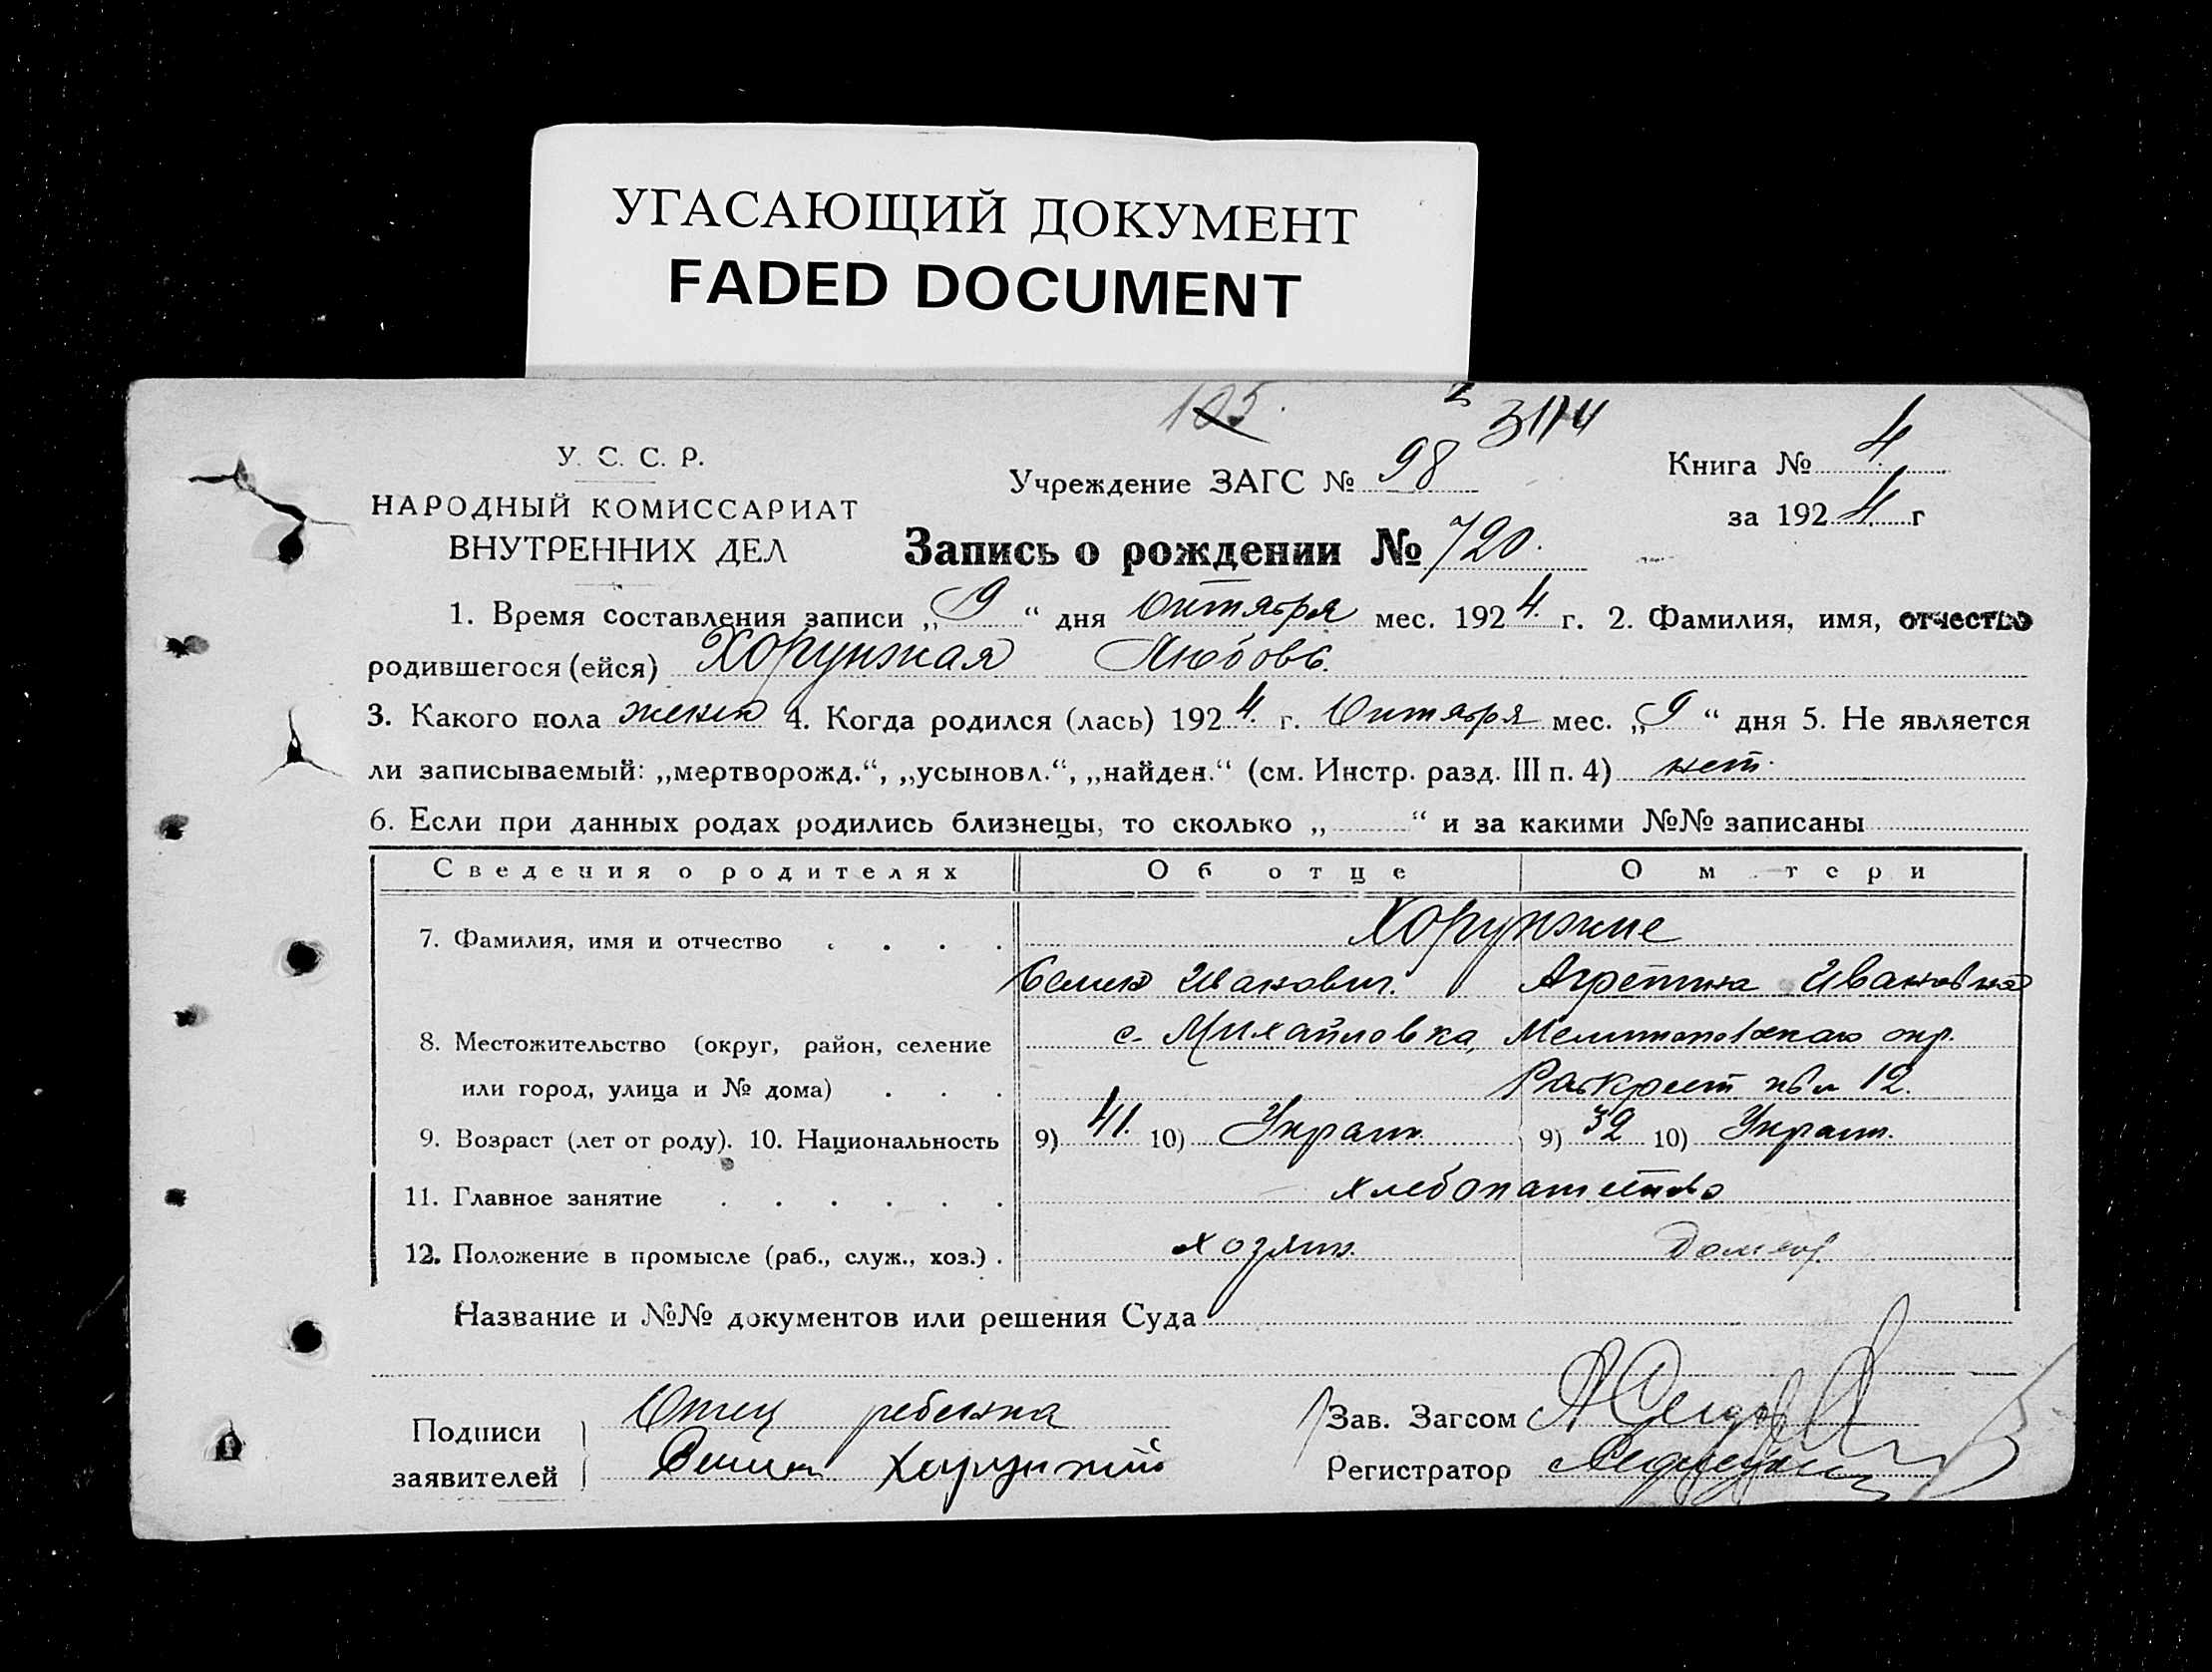 УГАСАЮЩИЙ ДОКУМЕНТ
FADED DOCUMENT
105. 3174
У. С. С. Р.
НАРОДНЫЙ КОМИССАРИАТ
ВНУТРЕННИХ ДЕЛ
Учреждение ЗАГС № 98
Книга № 4
за 1924 г
Запись о рождении № 720.
1. Время составления записи „ 9 “ дня Октября мес. 1924. г. 2. Фамилия, имя, отчество
родившегося (ейся) Хорунжая Любовь.
3. Какого пола женск 4. Когда родился (лась) 1924. г. Октября мес. „ 9 “ дня 5. Не является
ли записываемый: „мертворожд.“, „усыновл.“, „найден.“ (см. Инстр. разд. III п. 4) нет.
6. Если при данных родах родились близнецы, то сколько „ “ и за какими №№ записаны
Сведения о родителях Об отце О м тери
7. Фамилия, имя и отчество Хорунжие
Иванович. Агрепина Ивановна
8. Местожительство (округ, район, селение с. Михайловка, Мелитопольского окр.
или город, улица и № дома) 12.
9. Возраст (лет от роду). 10. Национальность 9) 41. 10) Украин. 9) 32 10) Украин.
11. Главное занятие хлебопашество
12. Положение в промысле (раб., служ., хоз.) хозяин. домхоз.
Название и №№ документов или решения Суда
Подписи заявителей Отец ребенка
Хорунжий
Зав. Загсом
Регистратор